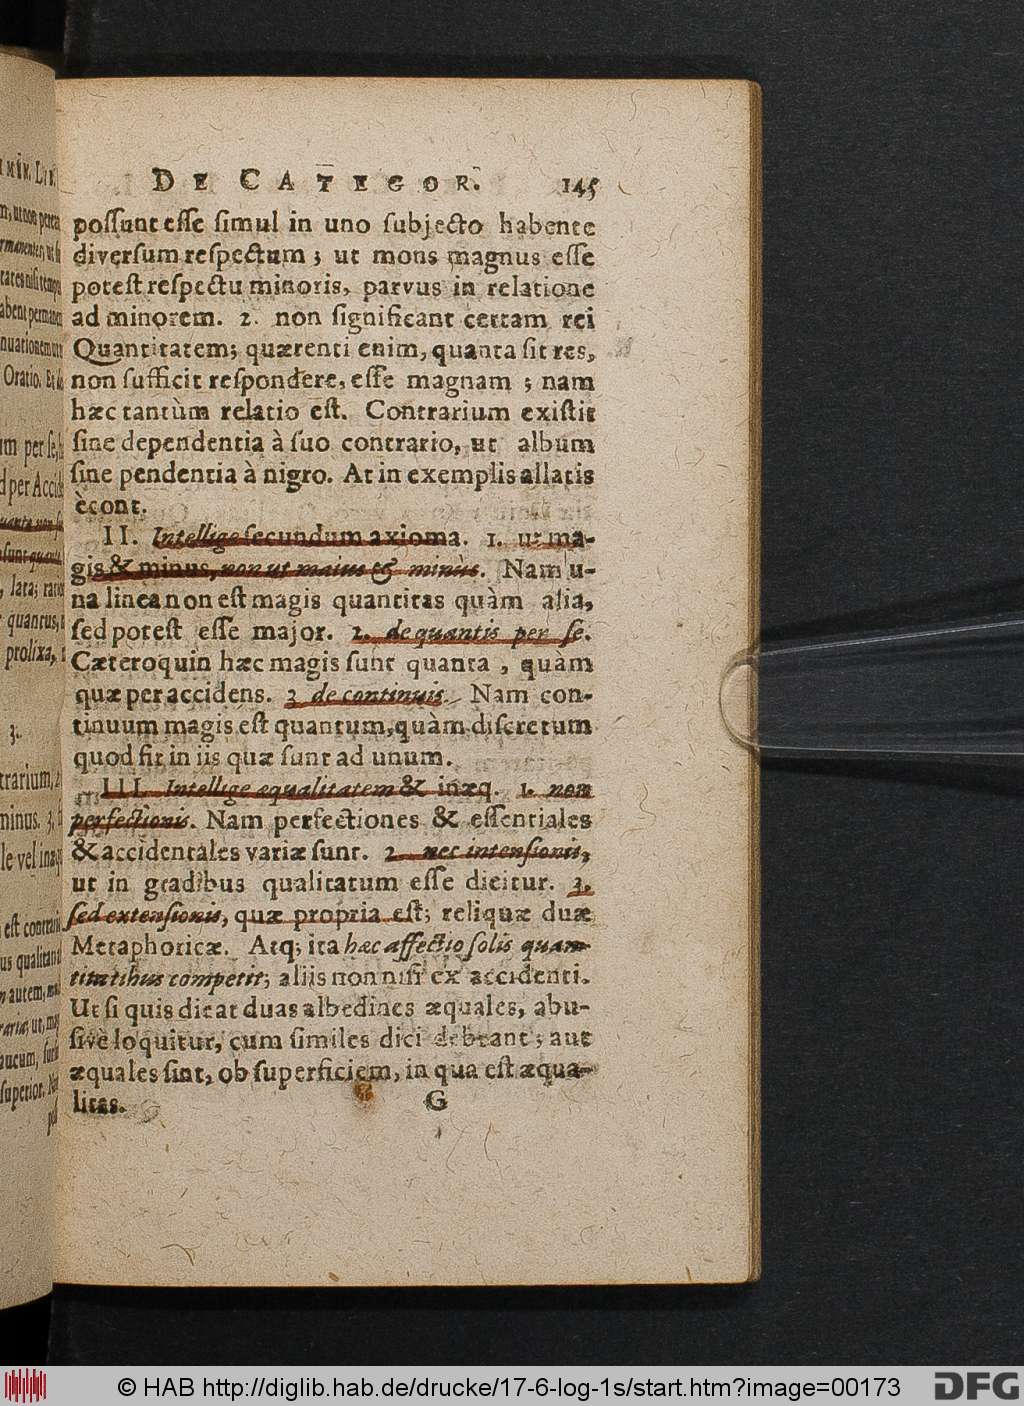 DE CATEGOR. 145
possunt esse simul in uno subjecto habente
diversum respectum; ut mons magnus esse
potest respectu minoris, parvus in relatione
ad minorem. 2. non significant certam rei
Quantitatem; quærenti enim, quanta sit res,
non sufficit respondere, esse magnam; nam
hæc tantùm relatio est. Contrarium existit
sine dependentia à suo contrario, ut album
sine pendentia à nigro. At in exemplis allatis
ècont.
II. Intellige secundum axioma. 1. ut ma-
gis & minus, non ut maius & minùs. Nam u-
na linea non est magis quantitas quàm alia,
sed potest esse major. 2. de quantis per se.
Cæteroquin hæc magis sunt quanta, quàm
quæ per accidens. 3 de continuis. Nam con-
tinuum magis est quantum, quàm discretum
quod fit in iis quæ sunt ad unum.
III. Intellige æqualitatem & inæq. 1. non
perfectionis. Nam perfectiones & essentiales
& accidentales variæ sunt. 2. nec intensionis,
ut in gradibus qualitatum esse dicitur. 3.
sed extensionis, quæ propria est; reliquæ duæ
Metaphoricæ. Atq; ita hæc affectio solis quan-
titatibus competit; aliis non nisi ex accidenti.
Ut si quis dicat duas albedines æquales, abu-
sivè loquitur, cum similes dici debeant; aut
æquales sint, ob superficiem, in qua est æqua-
litas.
G
© HAB http://diglib.hab.de/drucke/17-6-log-1s/start.htm?image=00173
DFG